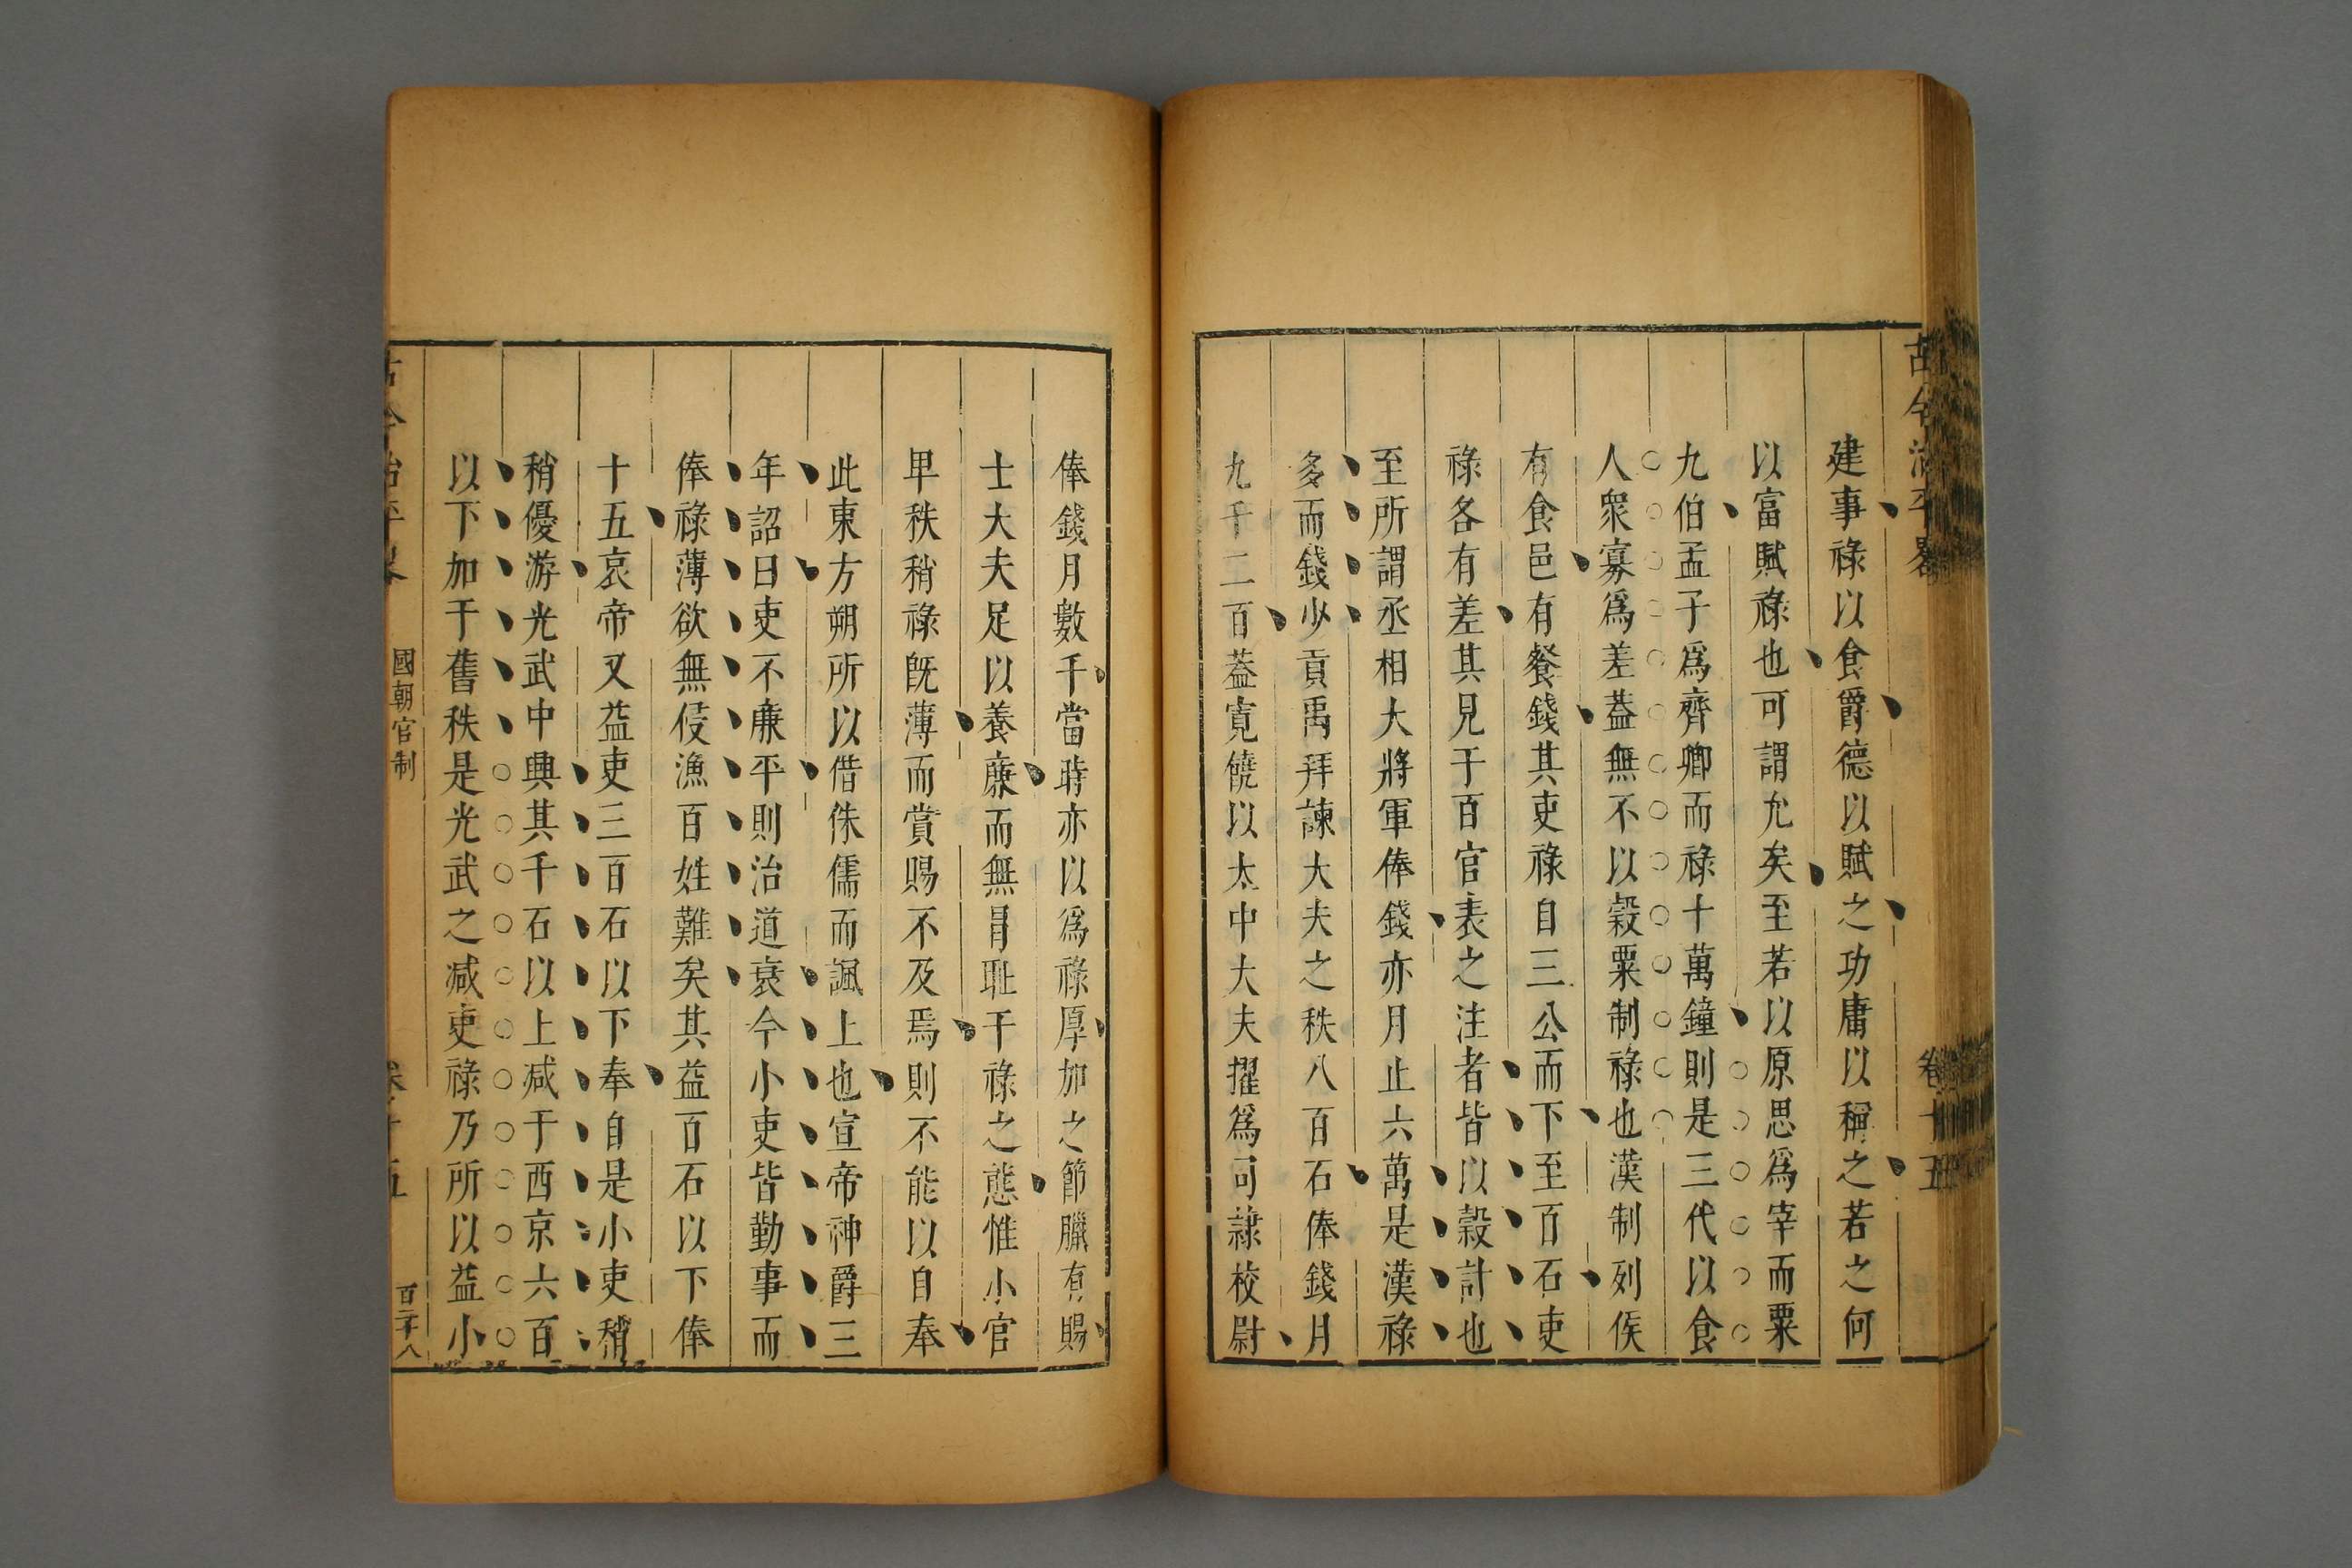 古今治平畧
卷十五
建事祿以食爵德以賦之功庸以稱之若之何
以富賦祿也可謂允矣至若以原思爲宰而粟
九伯孟子爲齊卿而祿十萬鐘則是三代以食
人衆寡爲差葢無不以穀粟制祿也漢制列侯
有食邑有餐錢其吏祿自三公而下至百石吏
祿各有差其見于百官表之注者皆以穀計也
至所謂丞相大將軍俸錢亦月止六萬是漢祿
多而錢少貢禹拜諫大夫之秩八百石俸錢月
九千二百葢寬饒以太中大夫擢爲司隷校尉
俸錢月數千當時亦以爲祿厚加之節臘有賜
士大夫足以養廉而無冒耻干祿之態惟小官
早秩稍祿旣薄而賞賜不及焉則不能以自奉
此東方朔所以借侏儒而諷上也宣帝神爵三
年詔曰吏不廉平則治道衰今小吏皆勤事而
俸祿薄欲無侵漁百姓難矣其益百石以下俸
十五哀帝又益吏三百石以下奉自是小吏稍
稍優游光武中興其千石以上减于西京六百
以下加于舊秩是光武之减吏祿乃所以益小
古今治平畧
國朝官制
卷十五
百二十八